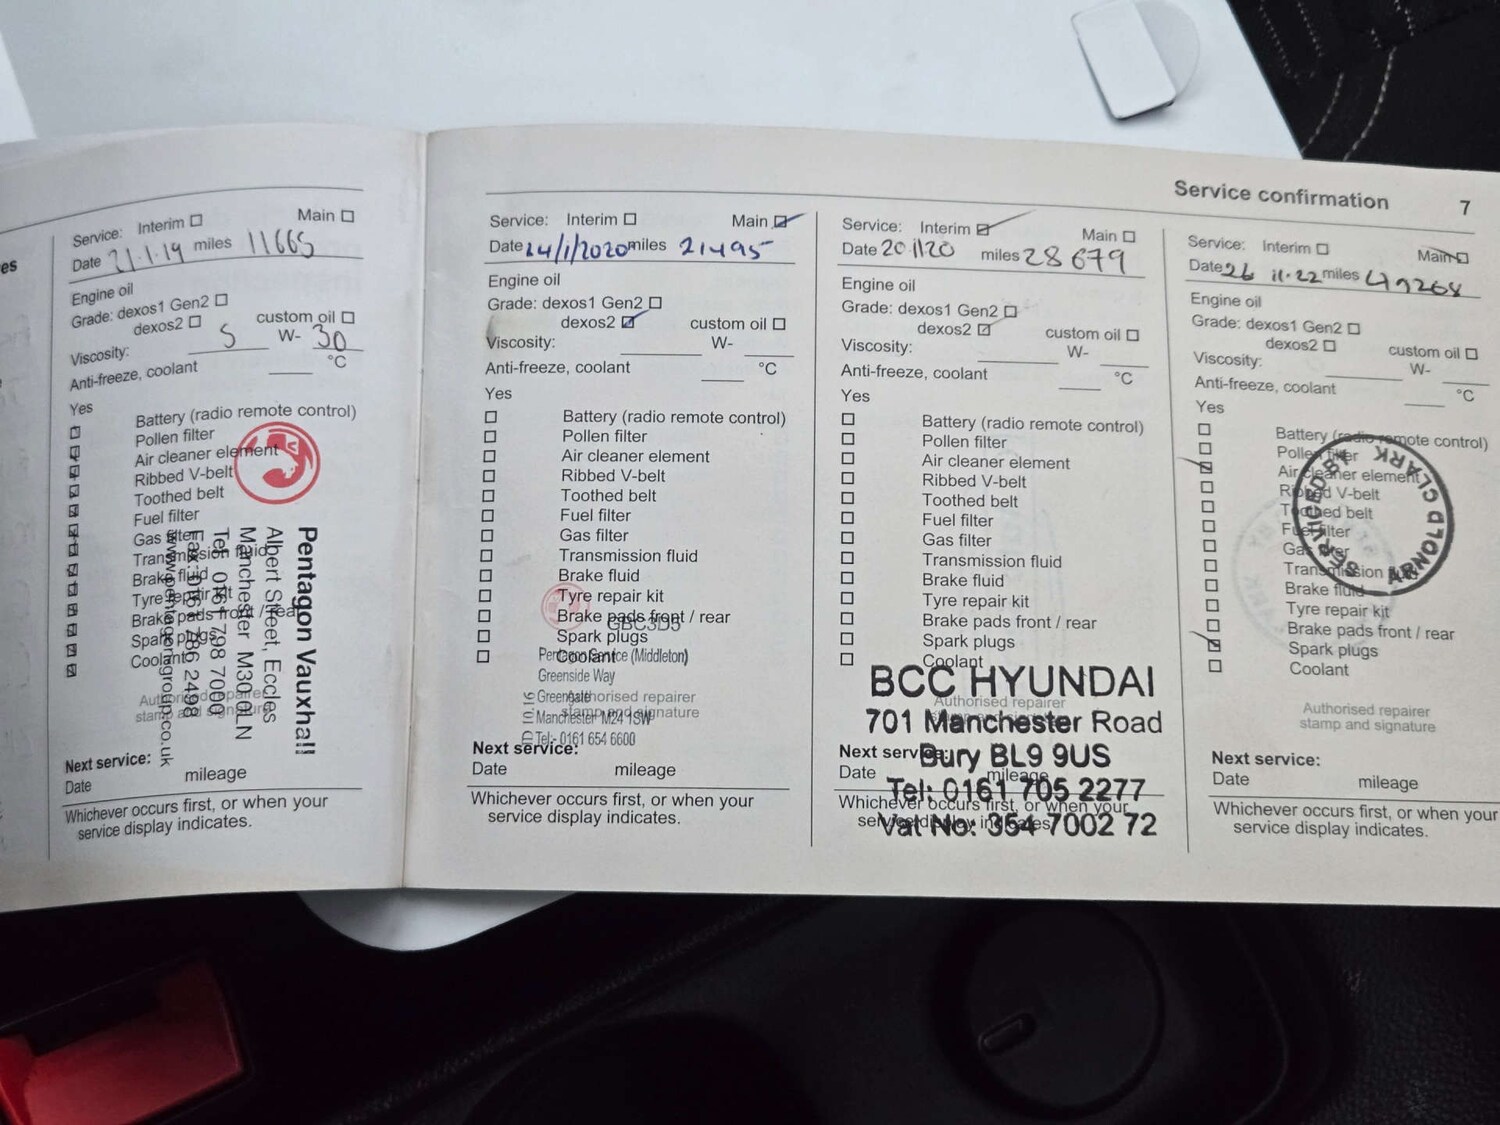 Service confirmation 7
es
Service: Interim Main
Date 21.1.19 miles 11665
Engine oil
Grade: dexos1 Gen2
dexos2 custom oil
Viscosity: 5 W- 30
Anti-freeze, coolant °C
Yes
Battery (radio remote control)
Pollen filter
Air cleaner element
Ribbed V-belt
Toothed belt
Fuel filter
Gas filter
Transmission fluid
Brake fluid
Tyre repair kit
Brake pads front / rear
Spark plugs
Coolant
Authorised repairer
stamp and signature
Pentagon Vauxhall
Albert Street, Eccles
Manchester M30 0LN
Tel: 0161 798 7000
Fax: 0161 786 2498
www.pentagongroup.co.uk
Next service:
Date mileage
Whichever occurs first, or when your
service display indicates.
Service: Interim Main
Date 24/1/2020 miles 21495
Engine oil
Grade: dexos1 Gen2
dexos2 custom oil
Viscosity: W-
Anti-freeze, coolant °C
Yes
Battery (radio remote control)
Pollen filter
Air cleaner element
Ribbed V-belt
Toothed belt
Fuel filter
Gas filter
Transmission fluid
Brake fluid
Tyre repair kit
Brake pads front / rear
GBC3D5
Spark plugs
Coolant
Pentagon Service (Middleton)
Greenside Way
Greengate
Authorised repairer
stamp and signature
Manchester M24 1SW
Tel:- 0161 654 6600
Next service:
Date mileage
Whichever occurs first, or when your
service display indicates.
Service: Interim Main
Date 20.11.20 miles 28679
Engine oil
Grade: dexos1 Gen2
dexos2 custom oil
Viscosity: W-
Anti-freeze, coolant °C
Yes
Battery (radio remote control)
Pollen filter
Air cleaner element
Ribbed V-belt
Toothed belt
Fuel filter
Gas filter
Transmission fluid
Brake fluid
Tyre repair kit
Brake pads front / rear
Spark plugs
Coolant
Authorised repairer
BCC HYUNDAI
701 Manchester Road
Bury BL9 9US
Tel: 0161 705 2277
Vat No: 354 7002 72
Next service:
Date mileage
Whichever occurs first, or when your
service display indicates.
Service: Interim Main
Date 26 11.22 miles
Engine oil
Grade: dexos1 Gen2
dexos2 custom oil
Viscosity: W-
Anti-freeze, coolant °C
Yes
Battery (radio remote control)
Pollen filter
Air cleaner element
Ribbed V-belt
Toothed belt
Fuel filter
Gas filter
Transmission fluid
Brake fluid
Tyre repair kit
Brake pads front / rear
Spark plugs
Coolant
SERVICED BY ARNOLD CLARK
Authorised repairer
stamp and signature
Next service:
Date mileage
Whichever occurs first, or when your
service display indicates.